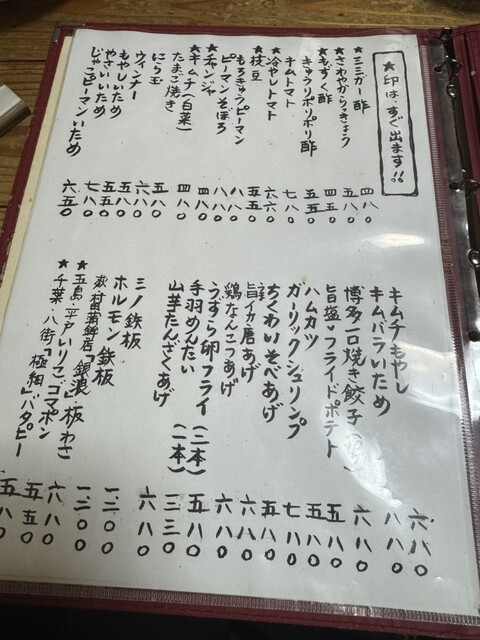 ★印は、すぐ出ます!!
★ミミガー酢
★さわやからっきょう
★もずく酢
きゅうりポリポリ酢
キムトマト
★冷やしトマト
★枝豆
もろきゅうピーマン
ピーマンそぼろ
★チャンジャ
★キムチ(白菜)
たまご焼き
にら玉
ウィンナー
もやしいため
やさいいため
じゃこピーマンいため
四八〇
五八〇
四五〇
五五〇
七八〇
六六〇
五五〇
八八〇
八八〇
四八〇
四八〇
五八〇
六八〇
五八〇
五五〇
七八〇
六五〇
キムチもやし
キムバラいため
博多一口焼き餃子
旨塩フライドポテト
ハムカツ
ガーリックシュリンプ
ちくわいそべあげ
旨イカ唐あげ
鶏なんこつあげ
うずら卵フライ(二本)
手羽めんたい(一本)
山芋たんざくあげ
ミノ鉄板
ホルモン鉄板
蒲鉾店「銀浪」板わさ
★五島・平戸いりこ・ゴマポン
★千葉・八街「極細」バタピー
六八〇
八八〇
六八〇
五八〇
五八〇
七八〇
五八〇
六八〇
六八〇
五八〇
三三〇
六八〇
一二〇〇
一二〇〇
六八〇
五五〇
五八〇